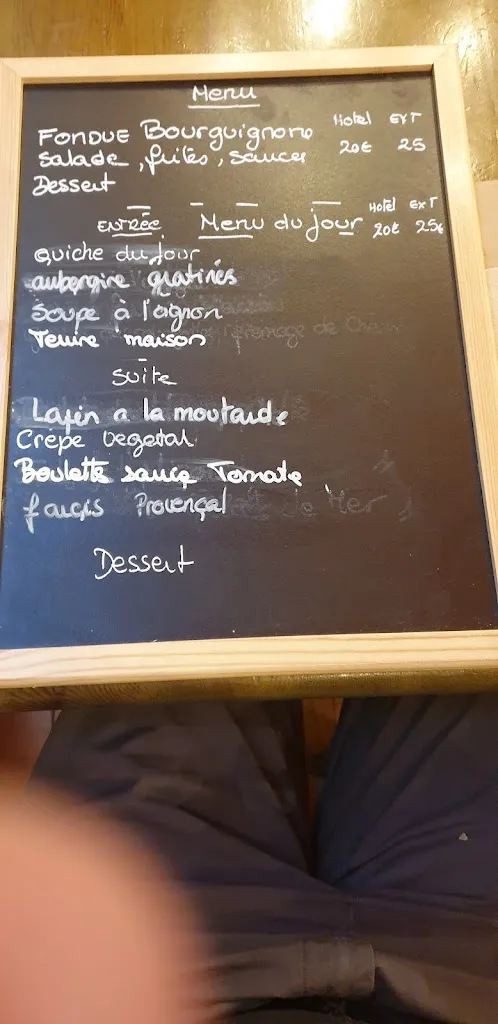 Menu
Hotel EXT
FONDUE Bourguignone 20€ 25
Salade, frites, sauces
Dessert
Hotel EXT
ENTRÉE Menu du jour 20€ 25€
quiche du jour
aubergine gratinés
Soupe à l'oignon
Terrine maison
suite
Lapin a la moutarde
Crepe vegetal
Boulette sauce Tomate
farcis Provençal
Dessert